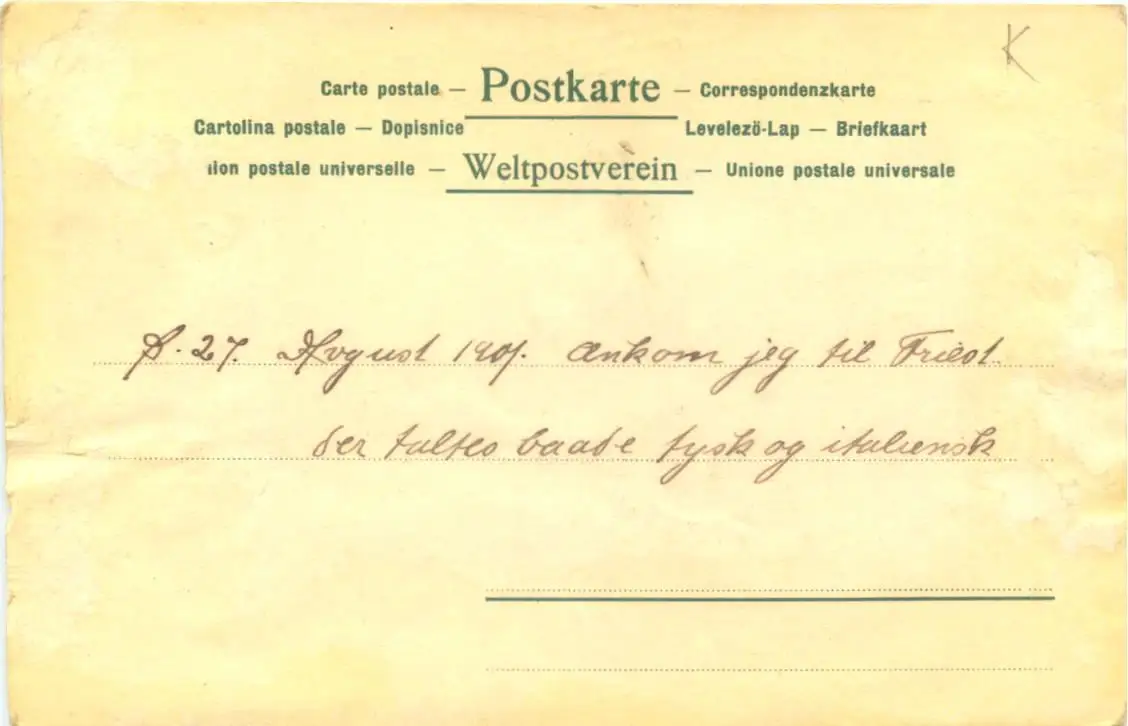 K
Carte postale — Postkarte — Correspondenzkarte
Cartolina postale — Dopisnice Levelező-Lap — Briefkaart
ion postale universelle — Weltpostverein — Unione postale universale
27. August 1901. ankom jeg til Triest
der taltes baade tysk og italiensk